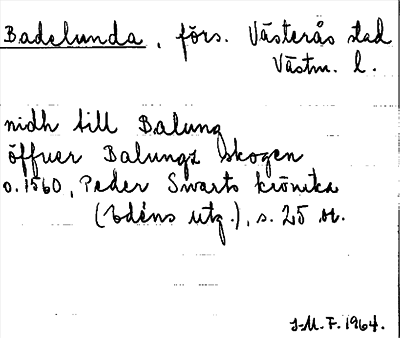 Badelunda, förs. Västerås stad
Västm. l.
nidh till Balung
öffuer Balungz skogen
o. 1560, Peder Swarts krönika
(Edéns utg.), s. 25 
J-M. F. 1964.